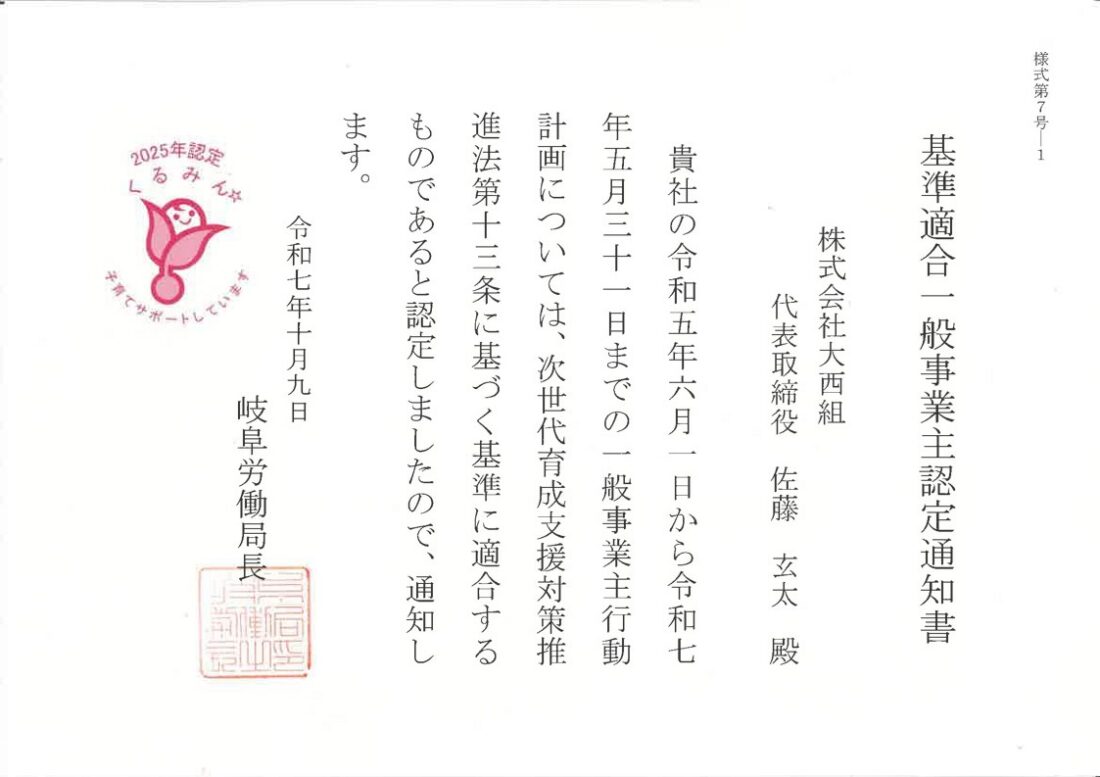 様式第7号―1
基準適合一般事業主認定通知書
株式会社大西組
代表取締役　佐藤　玄太　殿
貴社の令和五年六月一日から令和七
年五月三十一日までの一般事業主行動
計画については、次世代育成支援対策推
進法第十三条に基づく基準に適合する
ものであると認定しましたので、通知し
ます。
令和七年十月九日
岐阜労働局長
2025年認定
くるみん☆
子育てサポートしています